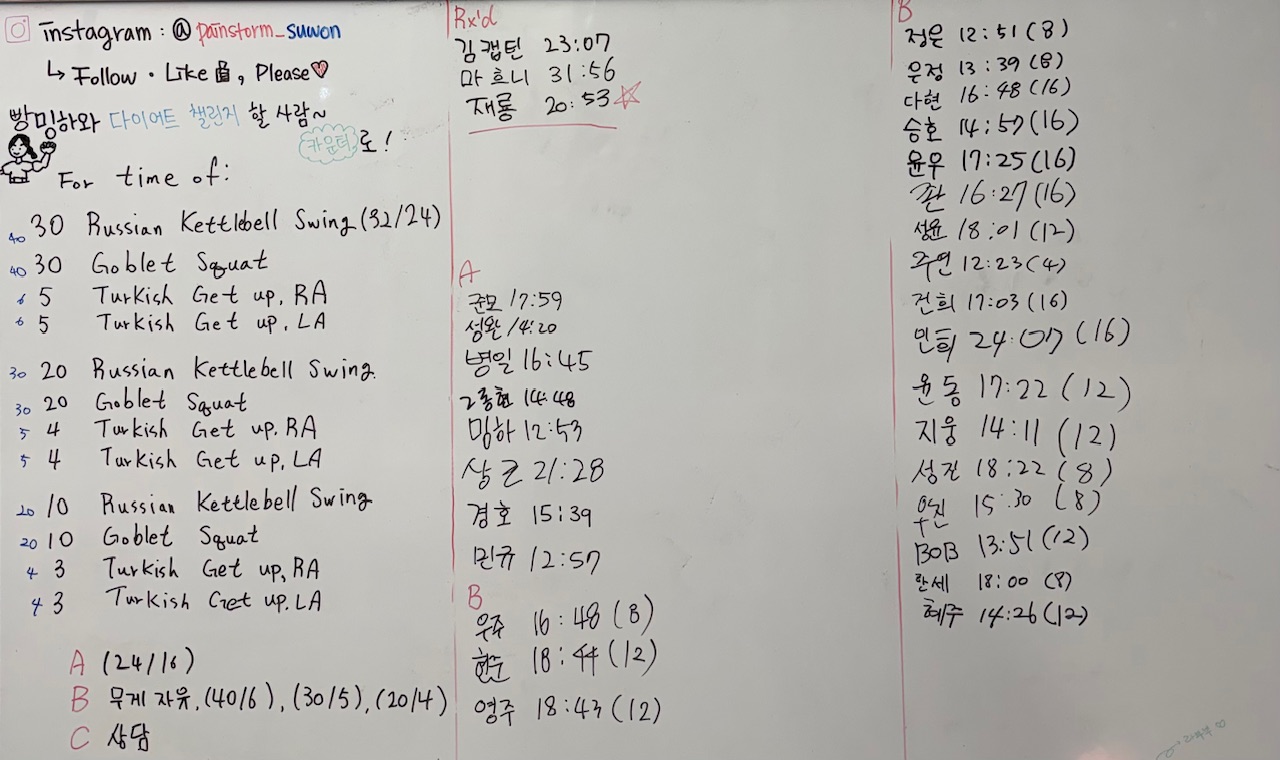 instagram : @painstorm_suwon
↳ Follow · Like, Please
빵밍하와 다이어트 챌린지 할 사람~
카운터로!
For time of:
40 30 Russian Kettlebell Swing (32/24)
40 30 Goblet Squat
6 5 Turkish Get up, RA
6 5 Turkish Get up, LA
30 20 Russian Kettlebell Swing.
30 20 Goblet Squat
5 4 Turkish Get up. RA
5 4 Turkish Get up, LA
20 10 Russian Kettlebell Swing
20 10 Goblet Squat
4 3 Turkish Get up, RA
4 3 Turkish Get up. LA
A (24/16)
B 무게 자유, (40/6), (30/5), (20/4)
C 상담
Rx'd
김캡틴 23:07
마흐니 31:56
재룡 20:53
A
준모 17:59
성완 14:20
병일 16:45
고종현 14:48
밍하 12:53
상근 21:28
경호 15:39
민규 12:57
B
우주 16:48 (8)
현수 18:44 (12)
영주 18:43 (12)
B
정은 12:51 (8)
은정 13:39 (8)
다현 16:48 (16)
승호 14:57 (16)
윤우 17:25 (16)
쫜 16:27 (16)
성윤 18:01 (12)
주연 12:23 (4)
건희 17:03 (16)
민희 24:07 (16)
윤동 17:22 (12)
지웅 14:11 (12)
성진 18:22 (8)
우진 15:30 (8)
BOB 13:51 (12)
만세 18:00 (8)
혜주 14:26 (12)